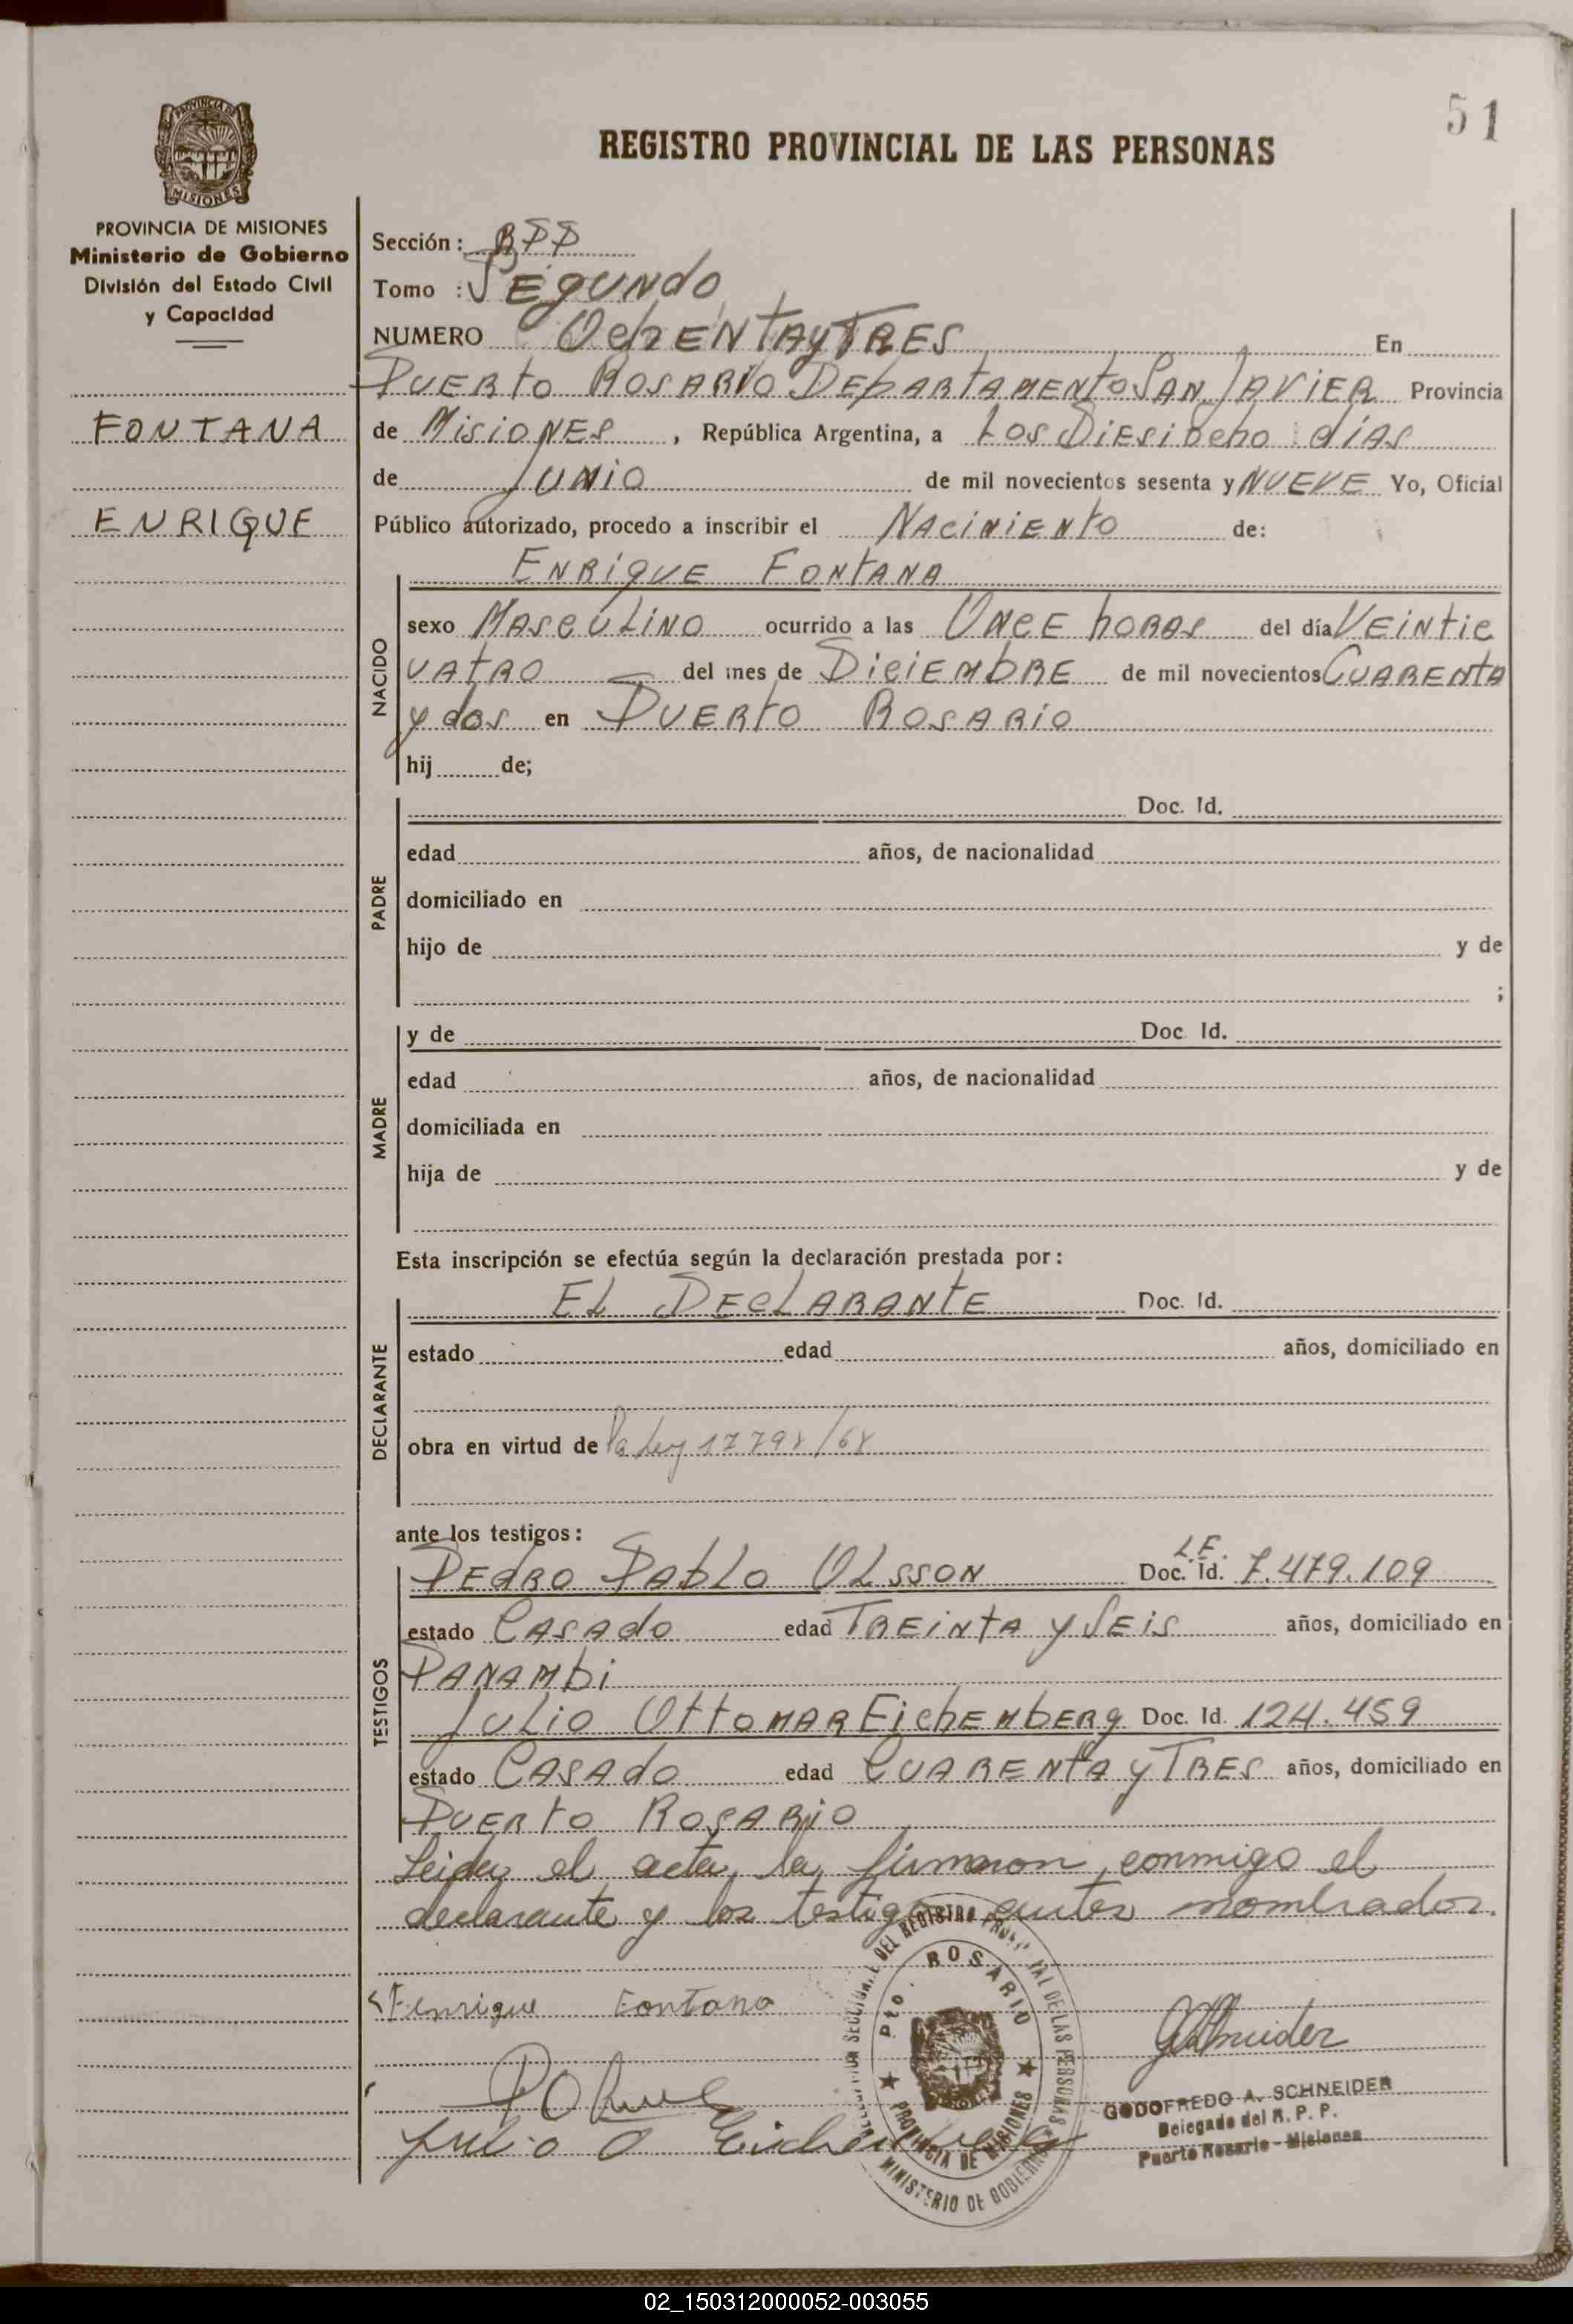 51
REGISTRO PROVINCIAL DE LAS PERSONAS
PROVINCIA DE
MISIONES
PROVINCIA DE MISIONES
Ministerio de Gobierno
División del Estado Civil
y Capacidad
FONTANA
ENRIQUE
Sección: RPP
Tomo : SEgUNdO
NUMERO OchENTAyTRES En
PUERtO ROSARIO DEpARtAMENtO SAN JAVIER Provincia
de MisiONES , República Argentina, a LOS DiESiOcho dÍAS
de JUNiO de mil novecientos sesenta y NUEVE Yo, Oficial
Público autorizado, procedo a inscribir el NAciMiENtO de:
NACIDO
ENRiqUE FONtANA
sexo MAScULiNO ocurrido a las ONcE hORAS del día VEiNtic
UAtRO del mes de DiciEMbRE de mil novecientos CUARENtA
y dos en PUERtO ROSARiO
hij de;
PADRE
Doc. Id.
edad años, de nacionalidad
domiciliado en
hijo de y de
;
MADRE
y de Doc. Id.
edad años, de nacionalidad
domiciliada en
hija de y de
Esta inscripción se efectúa según la declaración prestada por:
DECLARANTE
EL DEcLARANtE Doc. Id.
estado edad años, domiciliado en
obra en virtud de la Ley 17798/68
ante los testigos:
TESTIGOS
PEdRO PAbLO OLSSON Doc. Id. L.E. 7.479.109
estado CASAdO edad TREiNtA y SEiS años, domiciliado en
PANAMbi
JULiO OttOMAR EichEMbERg Doc. Id. 124.459
estado CASAdO edad CUARENtA y TRES años, domiciliado en
PUERtO ROSARiO
Leida el acta, la firmaron conmigo el
declarante y los testigos antes nombrados.
Enrique Fontana
Julio O
Pto. ROSARIO
PROVINCIA DE MISIONES
MINISTERIO DE GOBIERNO
DEL REGISTRO PROVINCIAL DE LAS PERSONAS
GODOFREDO A. SCHNEIDER
Delegado del R. P. P.
Puerto Rosario - Misiones
02_150312000052-003055